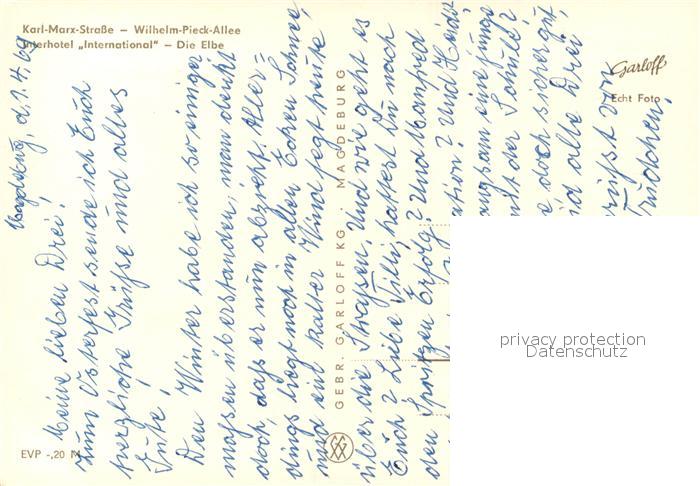 Karl-Marx-Straße – Wilhelm-Pieck-Allee
Interhotel „International" – Die Elbe
Garloff
Echt Foto
Magdeburg, d. 1.4.69
Meine lieben Drei!
Zum Osterfest sende ich Euch
herzliche Grüße und alles
Gute!
Den Winter habe ich so einiger
maßen überstanden, man denkt
doch, daß er nun abzieht. Aller=
dings liegt noch in allen Ecken Schnee,
und ein kalter Wind fegt heute
über die Straßen. Und wie geht es
Euch? Liebe Tilli, hattest Du nach
den Spritzen Erfolg? Und Manfred
ation? Und Heidi
angsam eine junge
mit der Schule?
e doch sicher gut,
nd alle Drei
grüßt von
Trudchen.
GEBR. GARLOFF KG · MAGDEBURG
EVP -,20 M
privacy protection
Datenschutz